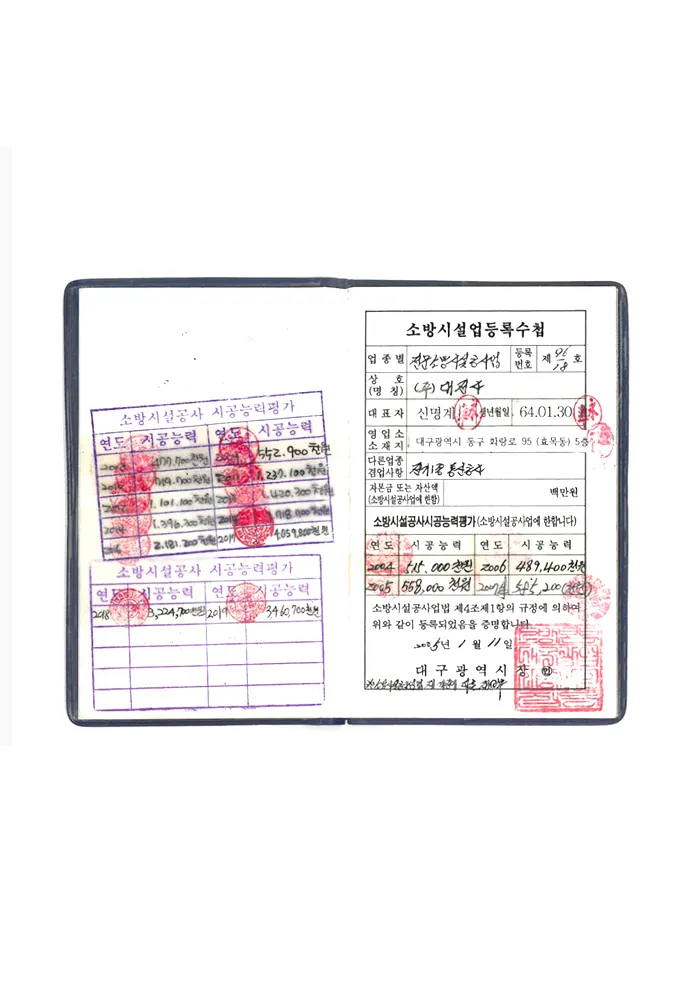 소방시설공사 시공능력평가
연도 시공능력 연도 시공능력
477,700천원 552,900천원
719,700천원 1,237,100천원
1,101,000천원 1,420,300천원
2014 1,396,300천원 1,718,900천원
2,181,200천원 2017
소방시설공사 시공능력평가
연도 시공능력 연도 시공능력
2018 3,224,700천원 2019 3,460,700천원
소방시설업등록수첩
업종별 전문소방시설공사업 등록번호 제 96-18 호
상호(명칭) (주)
대표자 신명계 생년월일 64.01.30
영업소소재지 대구광역시 동구 화랑로 95 (효목동) 5층
다른업종겸업사항 전기 및 통신공사
자본금 또는 자산액
(소방시설공사업에 한함) 백만원
소방시설공사시공능력평가(소방시설공사업에 한합니다)
연도 시공능력 연도 시공능력
2004 515,000천원 2006 489,400천원
2005 558,000천원 2007
소방시설공사업법 제4조제1항의 규정에 의하여
위와 같이 등록되었음을 증명합니다.
2005년 1월 11일
대구광역시장 인